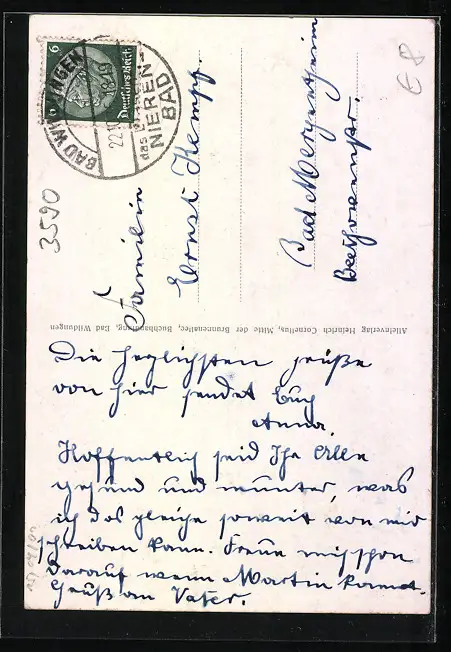 6
Deutsches Reich
BAD WILDUNGEN
22.
18-19
das
NIEREN-
BAD
3590
€ 8
Familie
Ernst Kempf.
Bad Mergentheim
Beethovenstr.
Alleinverlag Heinrich Cornelius, Mitte der Brunnenallee, Buchhandlung, Bad Wildungen
Die herzlichsten Grüße
von hier sendet Euch
Anna.
Hoffentlich seid Ihr Alle
gesund und munter, was
ich das gleiche soweit von mir
schreiben kann. Freue mich schon
darauf wenn Martin kommt.
Gruß an Vater.